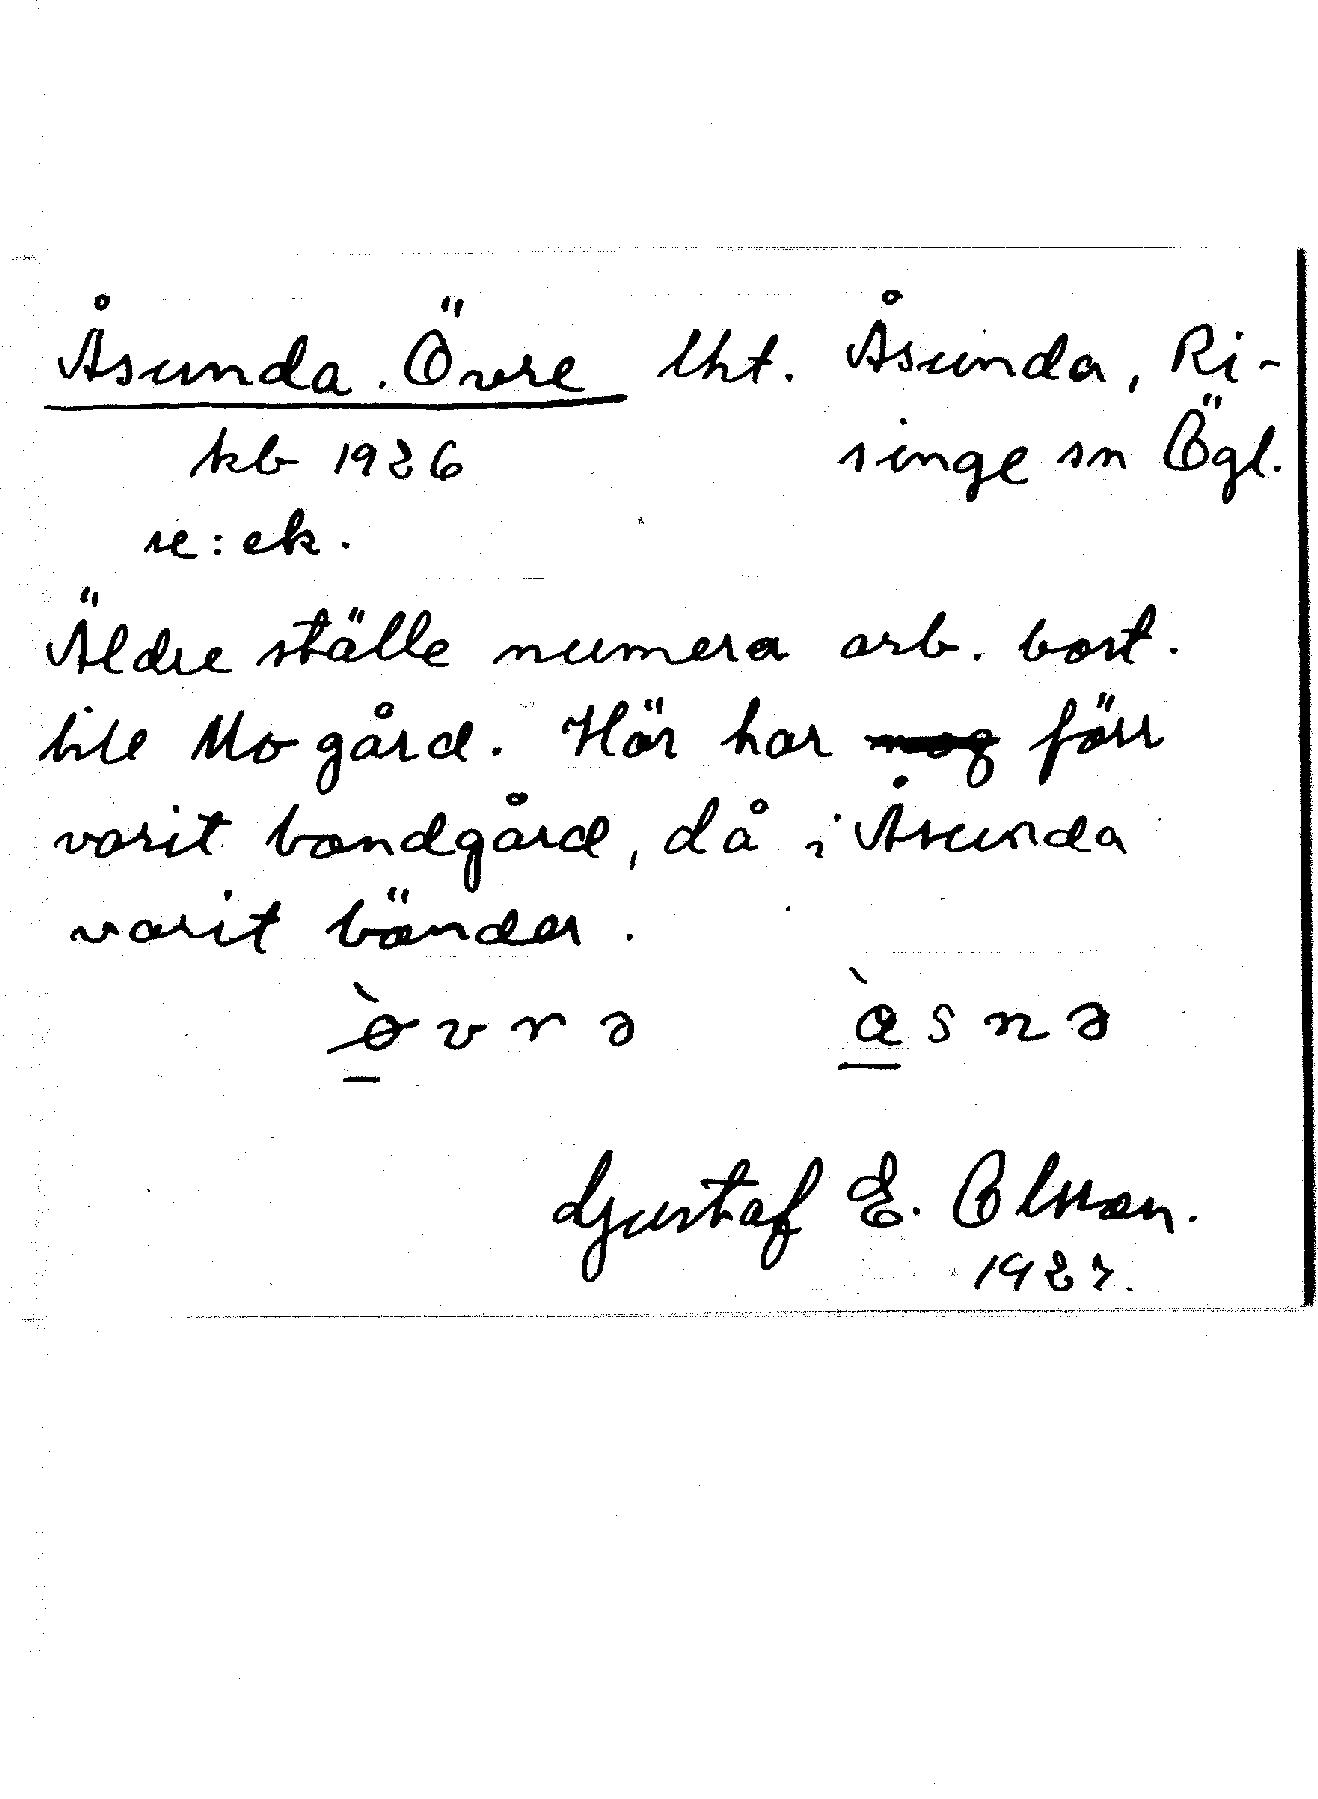 Åsunda. Övre lht. Åsunda, Ri-
kb 1926 singe sn Ögl.
se: ek.
Äldre ställe numera arb. bost.
till Mo gård. Här har förr
varit bondgård, då i Åsunda
varit bönder.
ø̀vrə àsnə
Gustaf E. Olsson.
1927.